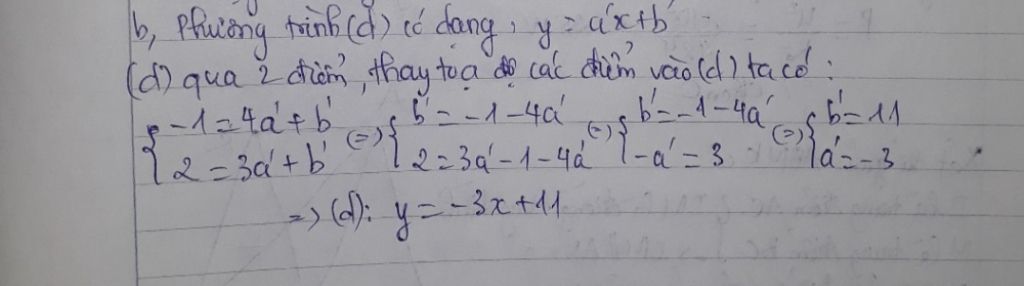 b, Phương trình (d) có dạng, y = a'x + b'
(d) qua 2 điểm, thay toạ độ các điểm vào (d) ta có :
{ -1 = 4a' + b' (=) { b' = -1 - 4a' (=) { b' = -1 - 4a' (=) { b' = 11
2 = 3a' + b' 2 = 3a' - 1 - 4a' -a' = 3 a' = -3
=> (d): y = -3x + 11